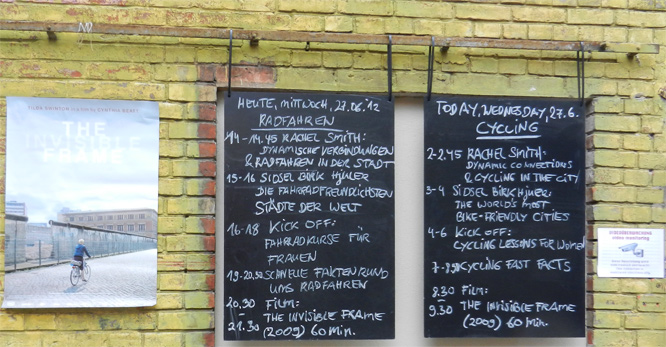 TILDA SWINTON
CYNTHIA BEATT
THE
INVISIBLE
FRAME
HEUTE, MITTWOCH, 27.06.12
RADFAHREN
14-14.45 RACHEL SMITH:
DYNAMISCHE VERBINDUNGEN
& RADFAHREN IN DER STADT
15-16 SIDSEL BIRK HJULER
DIE FAHRRADFREUNDLICHSTEN
STÄDTE DER WELT
16-18 KICK OFF:
FAHRRADKURSE FÜR
FRAUEN
19-20.30 SCHNELLE FAKTEN RUND
UMS RADFAHREN
20.30 FILM:
- THE INVISIBLE FRAME
21.30 (2009) 60 min.
TODAY, WEDNESDAY, 27.6.
CYCLING
2-2.45 RACHEL SMITH:
DYNAMIC CONNECTIONS
& CYCLING IN THE CITY
3-4 SIDSEL BIRK HJULER:
THE WORLD'S MOST
BIKE-FRIENDLY CITIES
4-6 KICK OFF:
CYCLING LESSONS FOR WOMEN
7-8.30 CYCLING FAST FACTS
8.30 FILM:
- THE INVISIBLE FRAME
9.30 (2009) 60 min.
VIDEOÜBERWACHUNG
video monitoring